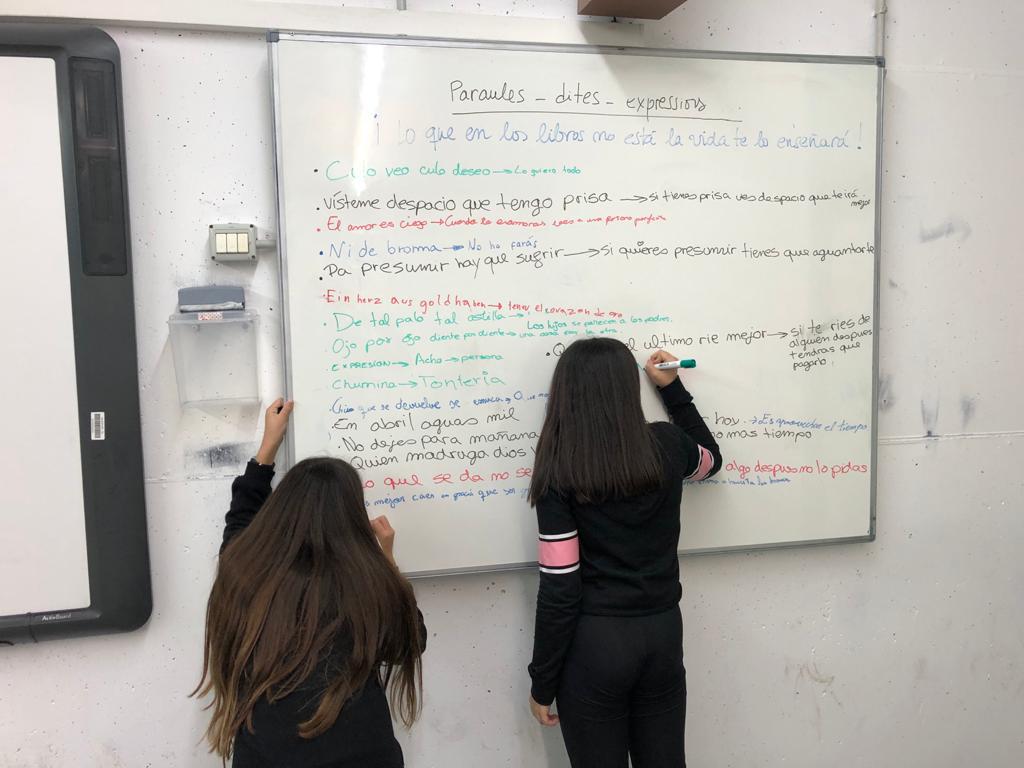 Paraules - dites - expressions
¡Lo que en los libros no está la vida te lo enseñará!
• Culo veo culo deseo → Lo quiero todo
• Vísteme despacio que tengo prisa → si tienes prisa ves despacio que te irá mejor
• El amor es ciego →
• Ni de broma → No ho faràs
• Pa presumir hay que sugrir → si quieres presumir tienes que aguantarte
• Ein herz aus gold haben → tener el corazon de oro
• De tal palo tal astilla → Los hijos se parecen a los padres.
• Ojo por ojo diente por diente → una cosa por la otra
• el ultimo rie mejor → si te ries de alguien despues tendras que pagarlo.
EXPRESIÓN → Acho → persona
Chumina → Tontería
que se devuelve se
• En abril aguas mil
• No dejes para mañana hoy. → Es aprovechar el tiempo
Quien madruga dios mas tiempo
lo que se da no se algo despues no lo pidas
mejor caer en gracia que ser
ActivBoard